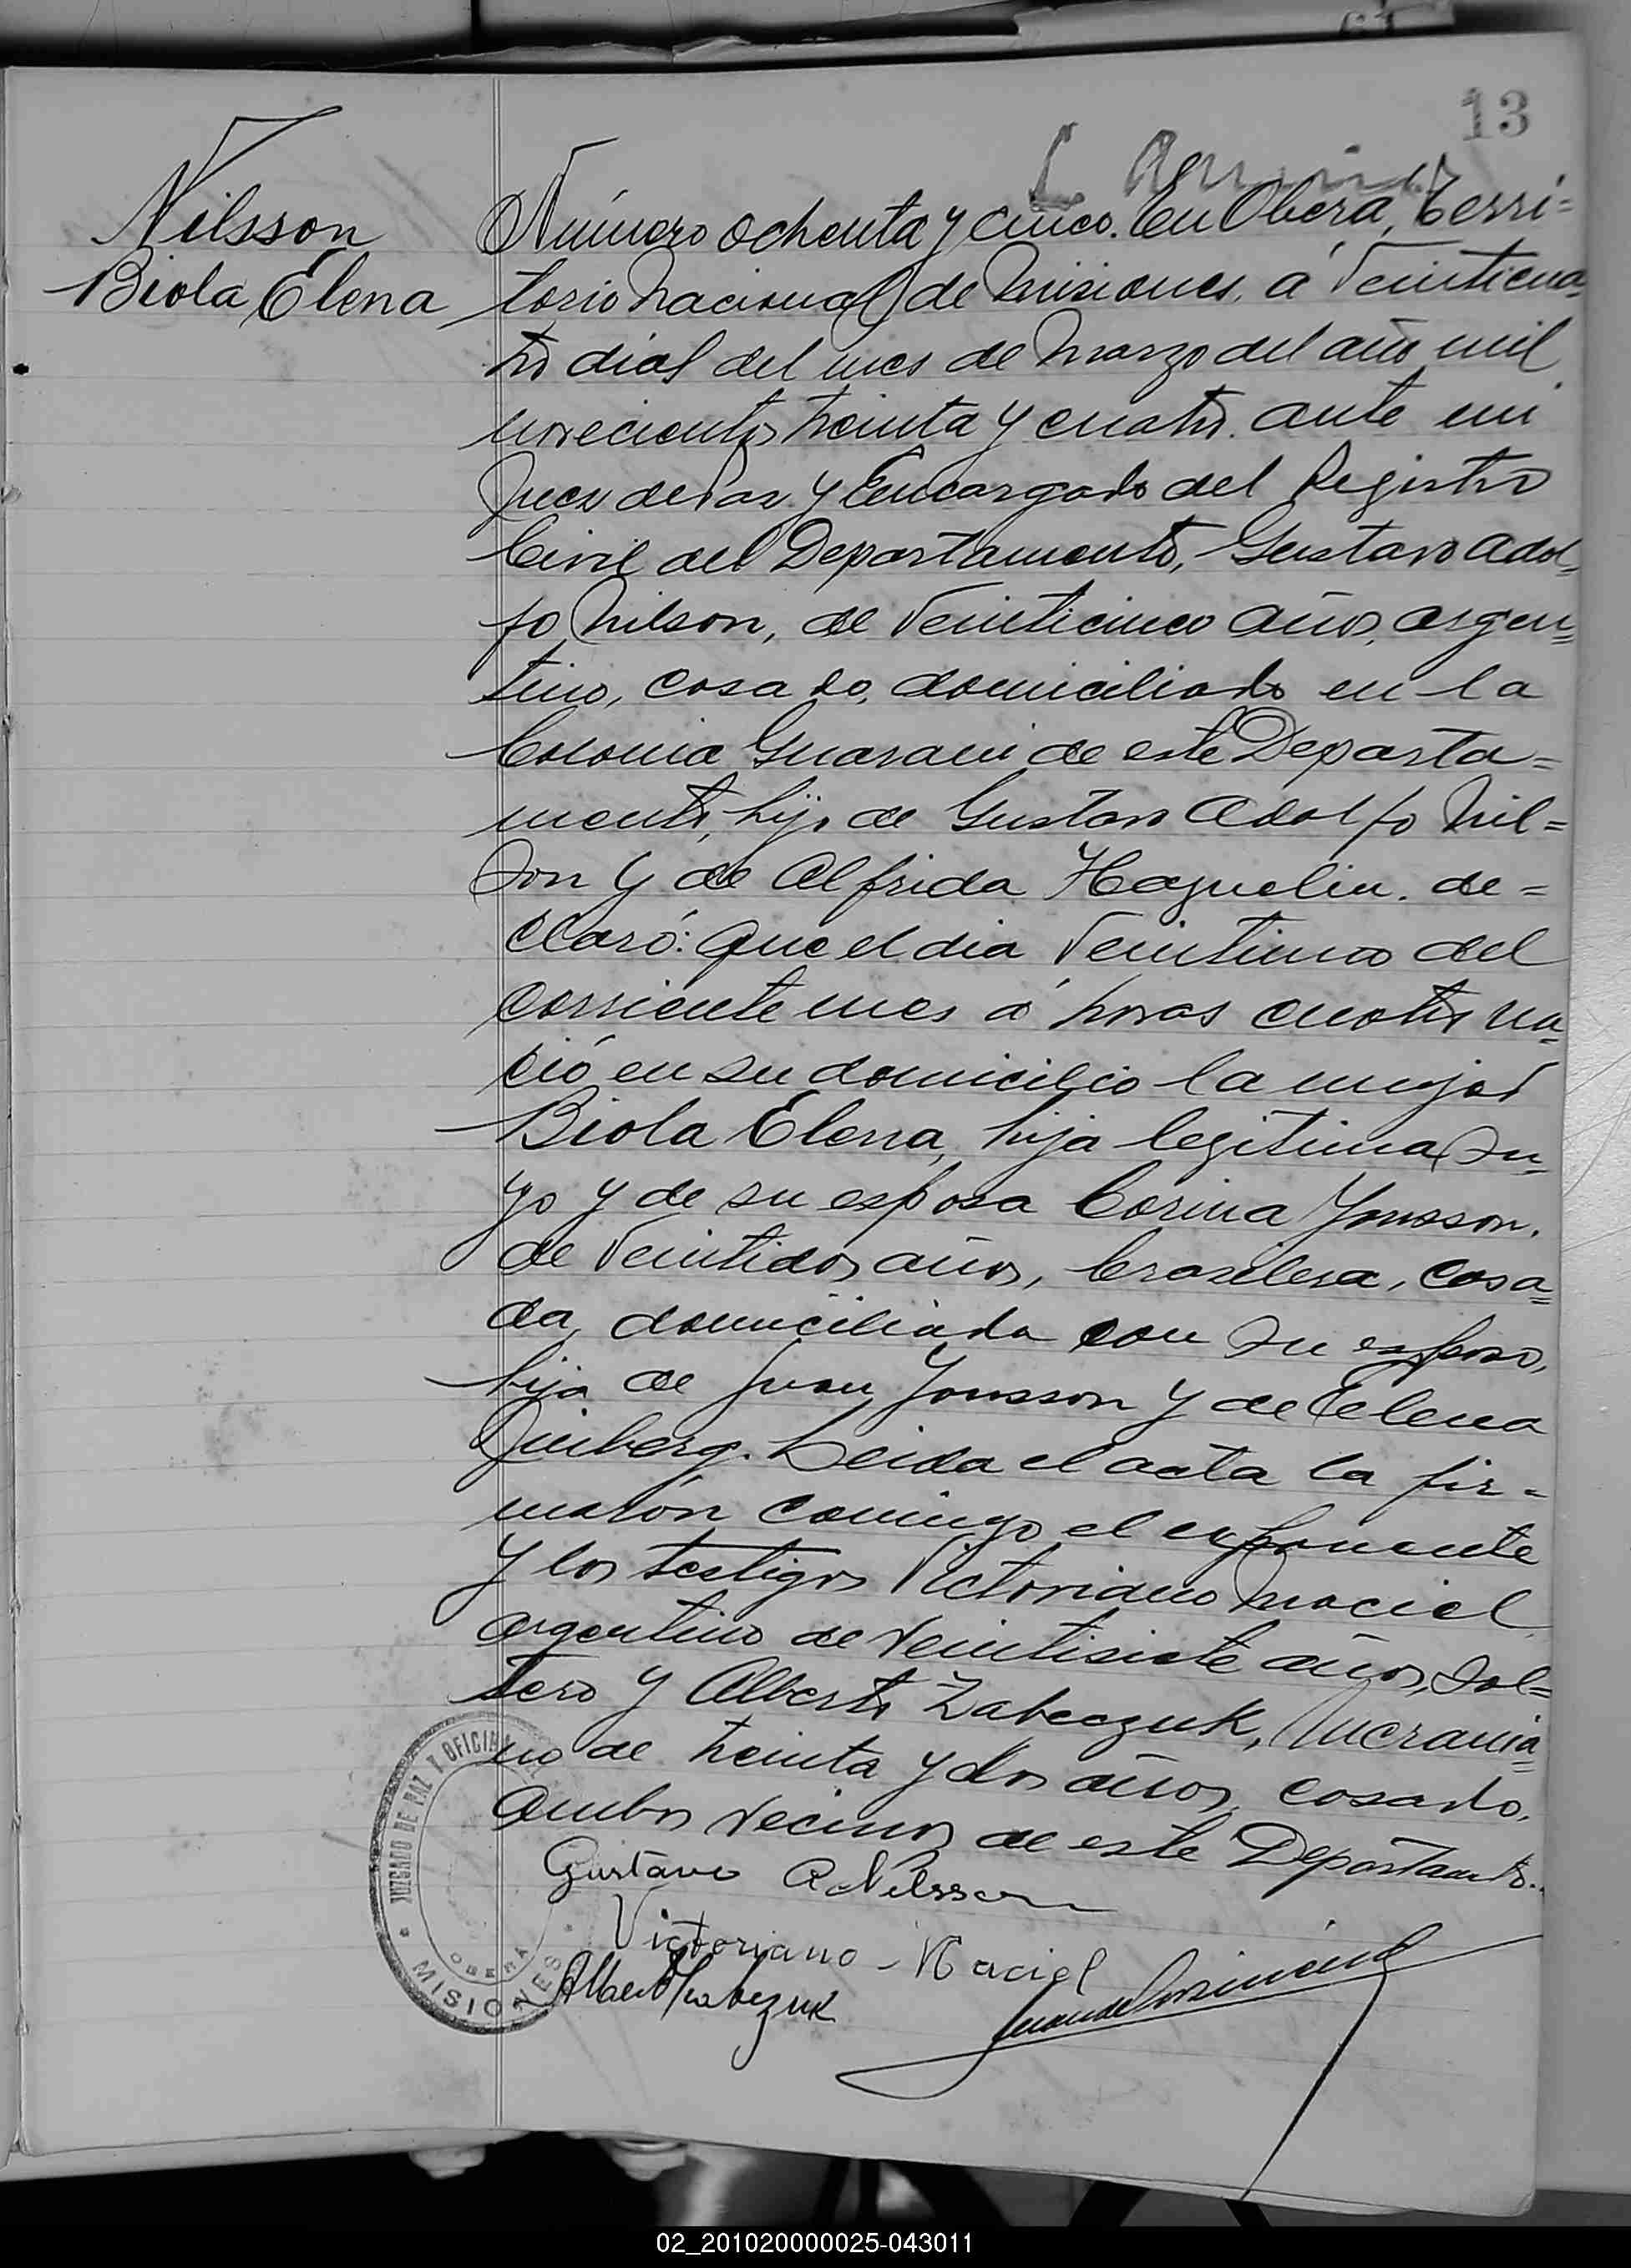 13
Nilsson
Biola Elena
Número ochenta y cinco. En Oberá, Terri=
torio Nacional de Misiones, á veinticua=
tro dias del mes de Marzo del año mil
novecientos treinta y cuatro. ante mi
Juez de Paz y Encargado del Registro
Civil del Departamento, Gustavo Adol=
fo Nilson, de veinticinco años, argen=
tino, casado, domiciliado en la
Colonia Guarani de este Departa=
mento, hijo de Gustavo Adolfo Nil=
son y de Alfrida Hagnelin. de=
claró: Que el dia veintiuno del
corriente mes á horas cuatro na=
ció en su domicilio la mujer
Biola Elena, hija legitima su=
yo y de su esposa Corina Jonsson.
de veintidos años, brasilera, casa=
da, domiciliada con su esposo,
hija de Juan Jonsson y de Elena
Leida el acta la fir=
marón comigo el exponente
y los testigos Victoriano Maciel
argentino de veintisiete años, sol=
tero y Alberto Zabczuk, Ucrania=
no de treinta y dos años, casado,
ambos vecinos de este Departamento..
Gustavo A Nilsson
Victoriano Maciel
Alberto
JUZGADO DE PAZ Y OFICINA
OBERA
MISIONES
02_201020000025-043011